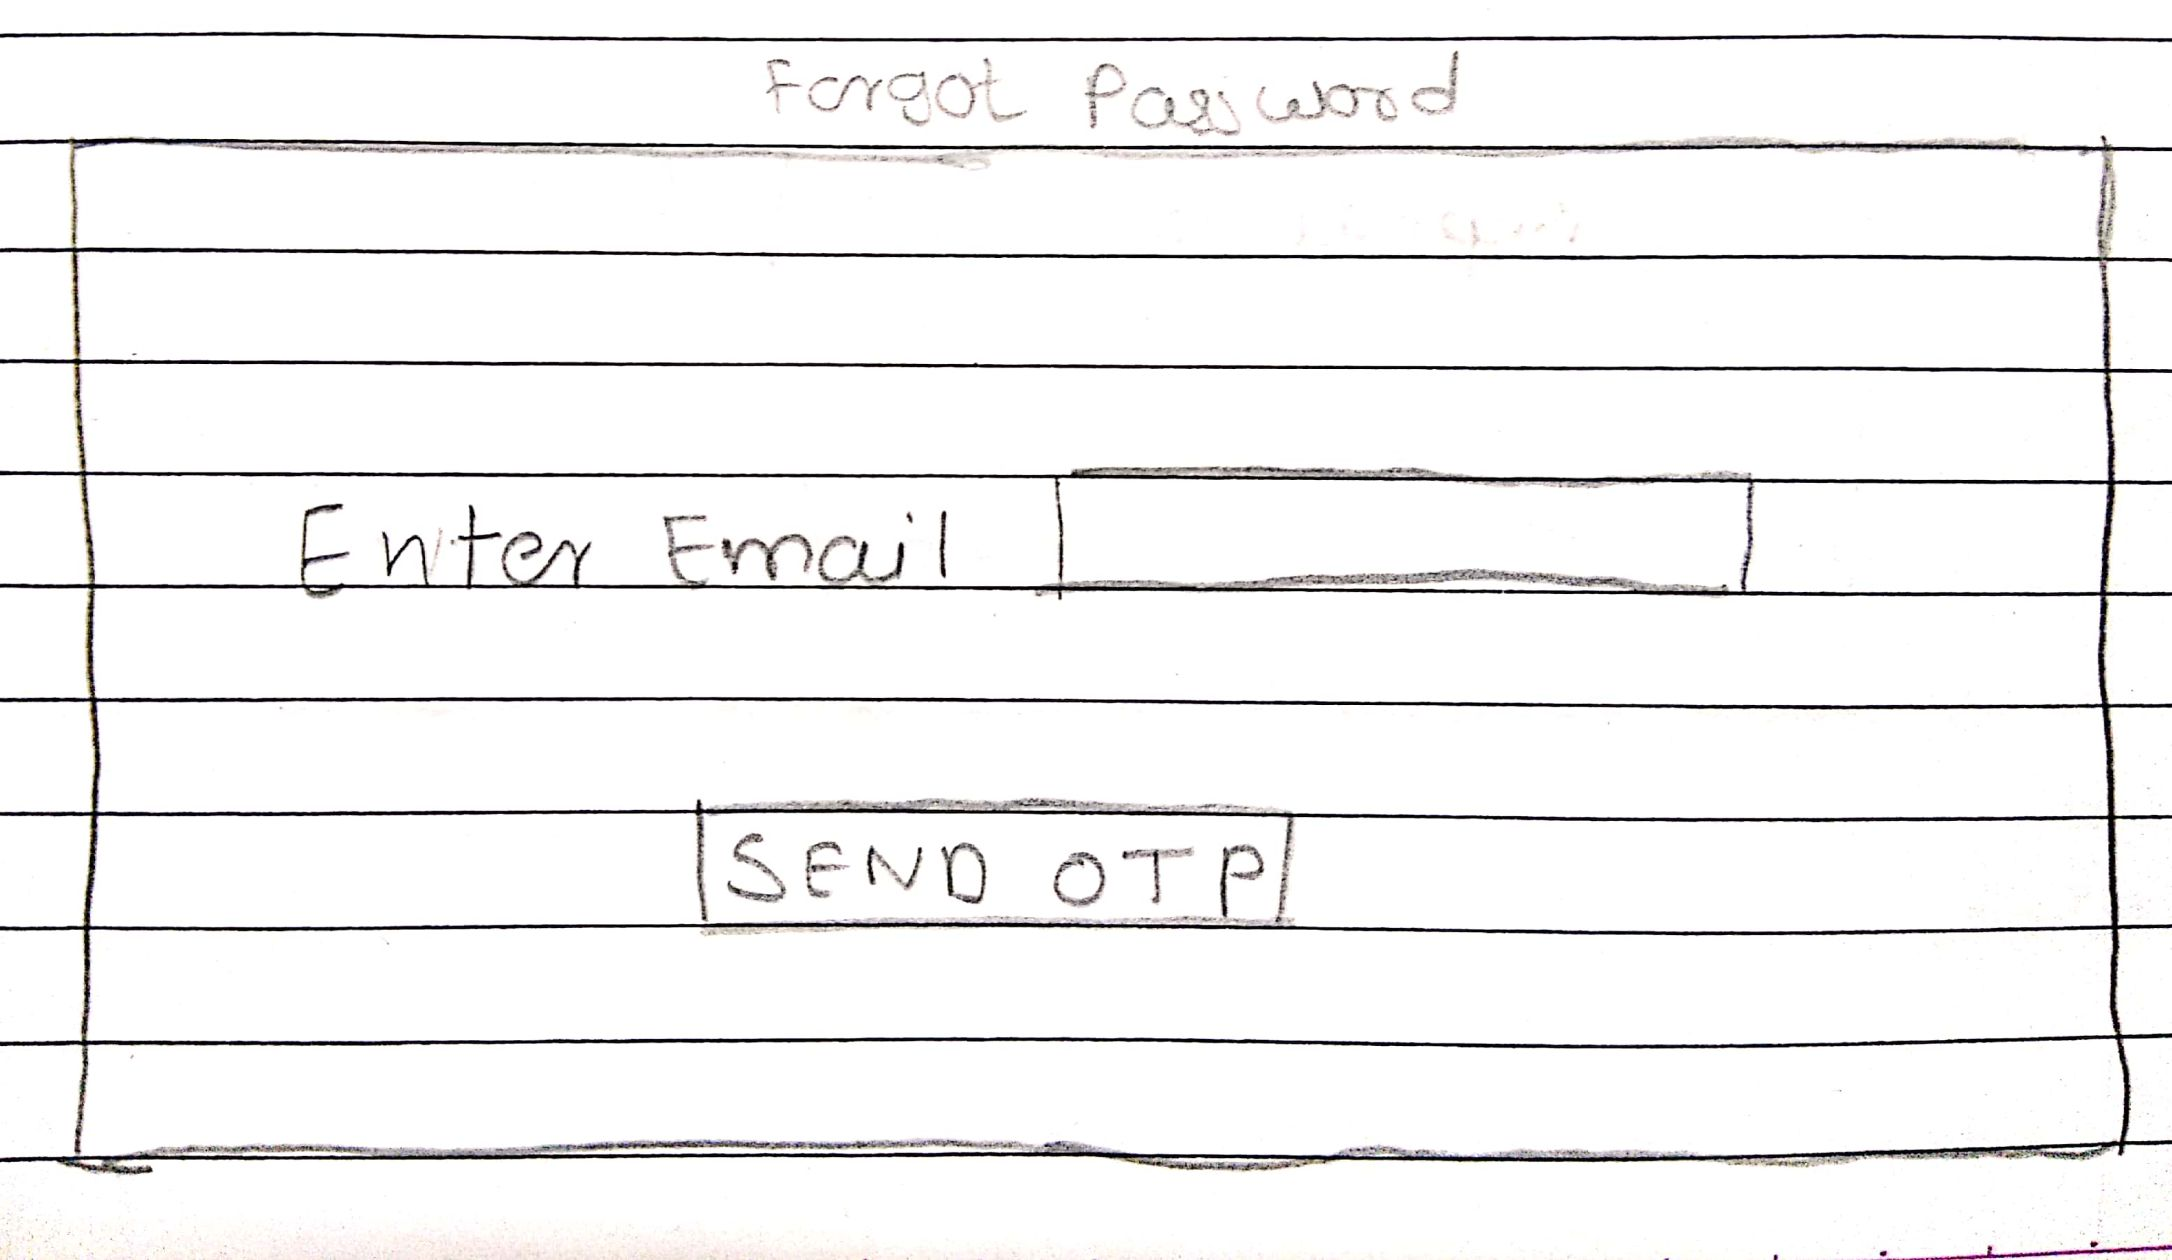 Forgot Password
Enter Email
SEND OTP